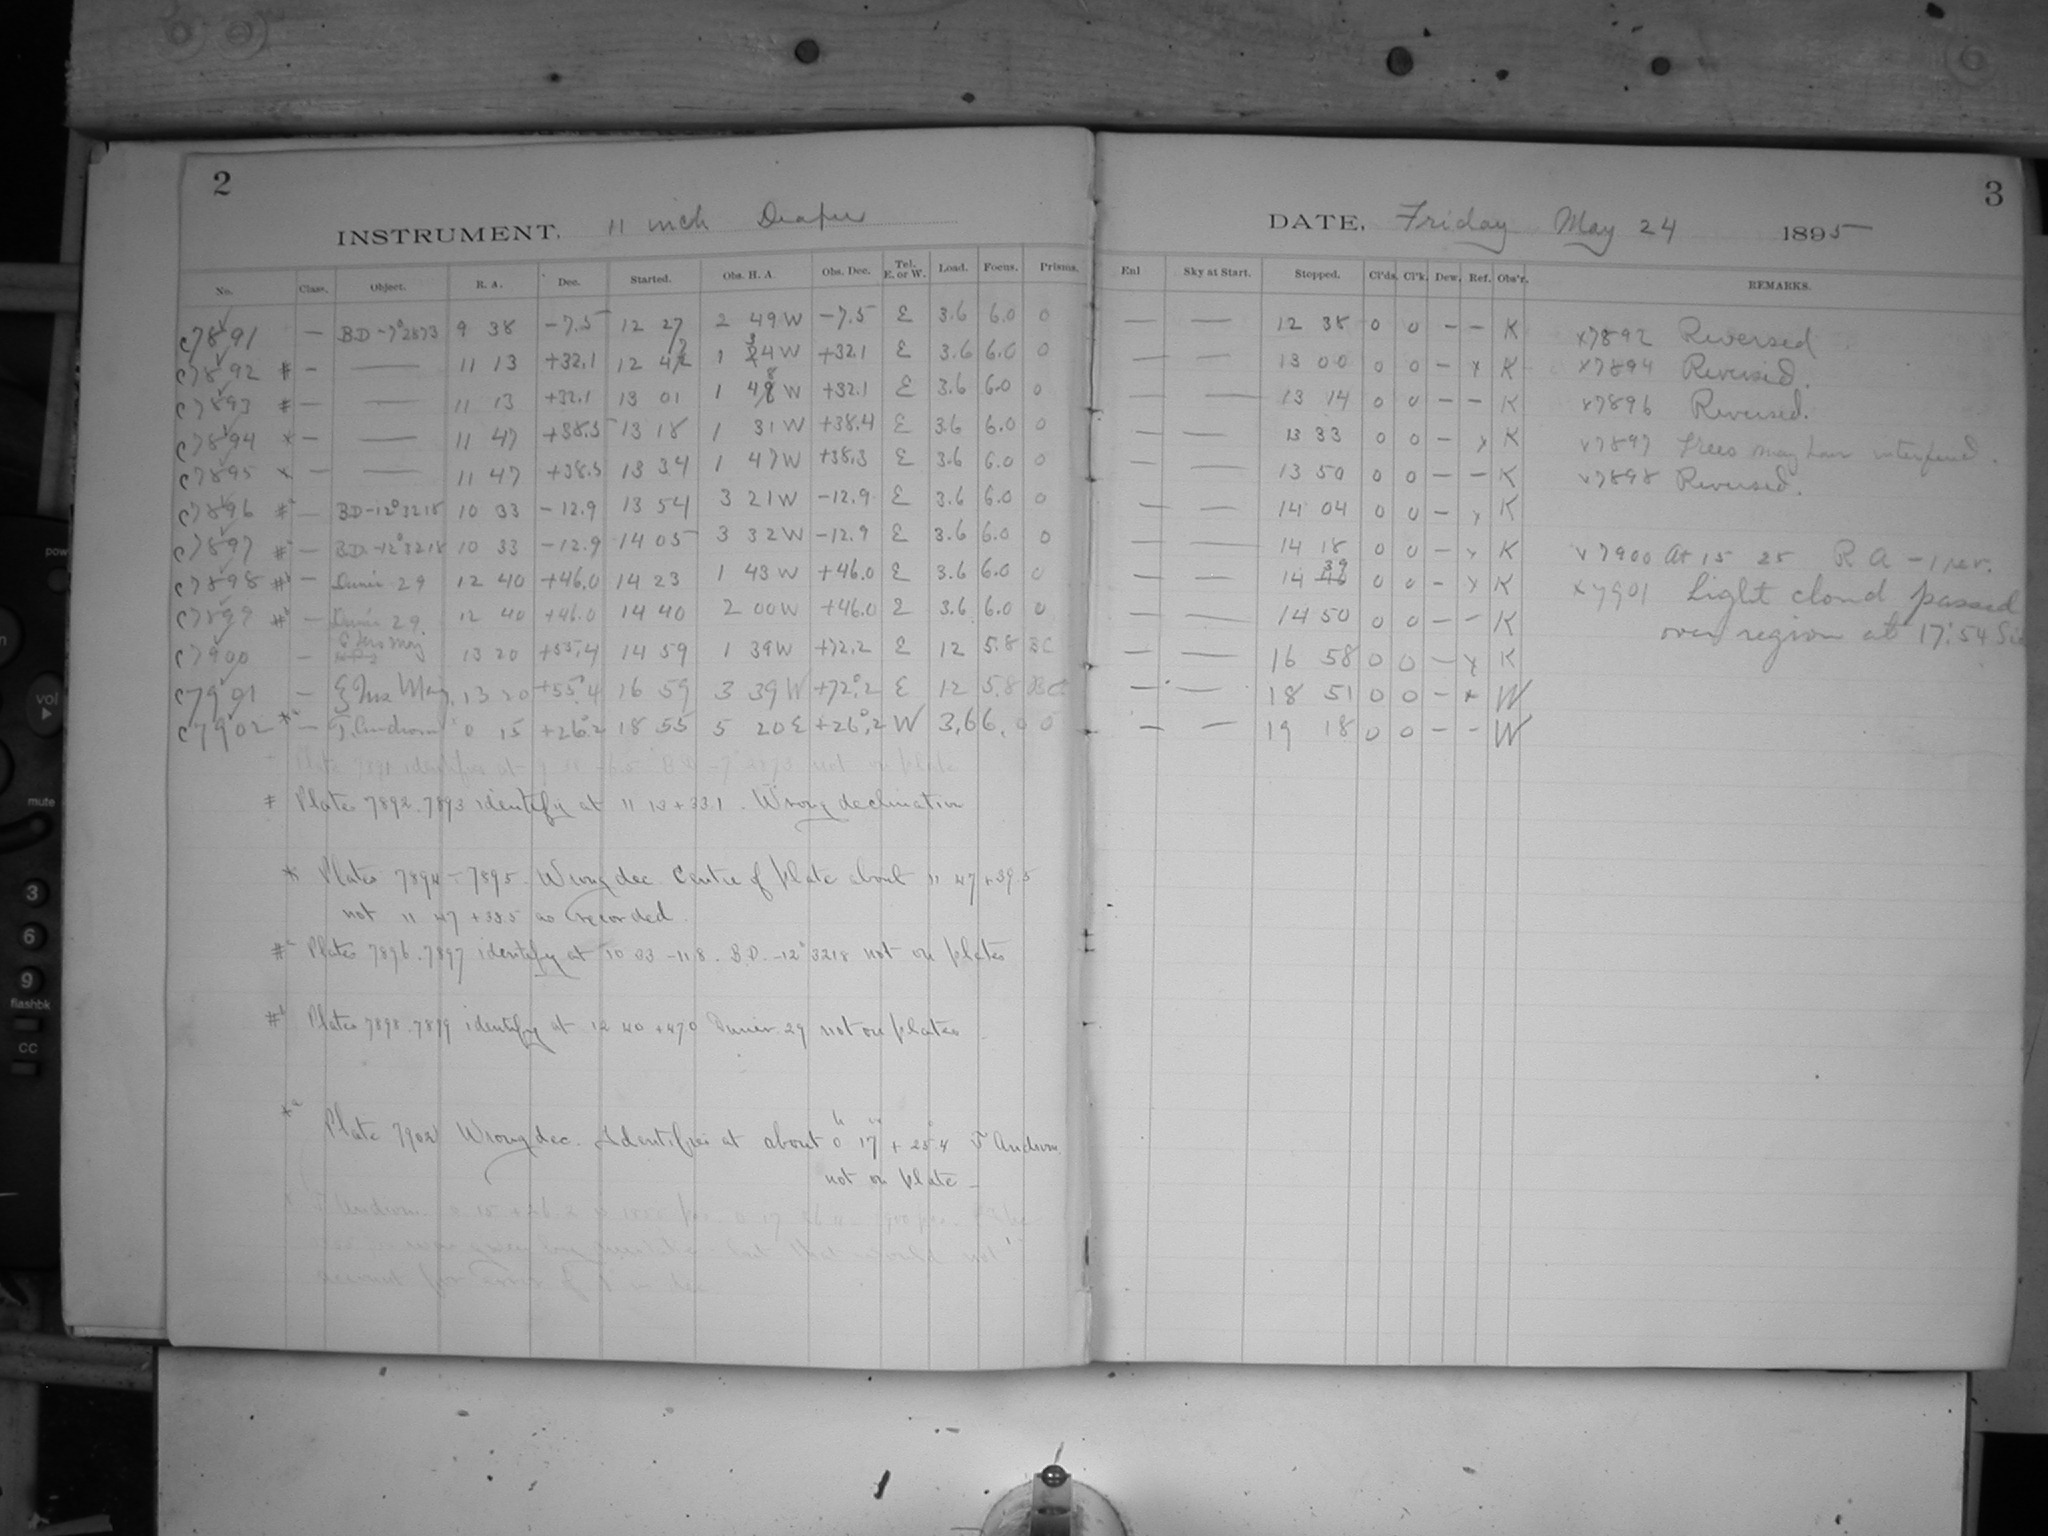 2
INSTRUMENT. 11 inch Draper
No. Class. Object. R. A. Dec. Started. Obs. H. A. Obs. Dec. Tel. E. or W. Load. Focus. Prisms.
C7891 — B.D -7°2873 9 38 -7.5 12 27 2 49 W -7.5 E 3.6 6.0 0
C7892 # — — 11 13 +32.1 12 47 1 34 W +32.1 E 3.6 6.0 0
C7893 # — — 11 13 +32.1 13 01 1 48 W +32.1 E 3.6 6.0 0
C7894 x — — 11 47 +38.5 13 18 1 31 W +38.4 E 3.6 6.0 0
C7895 x — — 11 47 +38.5 13 34 1 47 W +38.3 E 3.6 6.0 0
C7896 #a — B.D -12°3218 10 33 -12.9 13 54 3 21 W -12.9 E 3.6 6.0 0
C7897 #a — B.D. -12°3218 10 33 -12.9 14 05 3 32 W -12.9 E 3.6 6.0 0
C7898 #b — Dunér 29 12 40 +46.0 14 23 1 43 W +46.0 E 3.6 6.0 0
C7899 #b — Dunér 29 12 40 +46.0 14 40 2 00 W +46.0 E 3.6 6.0 0
C7900 — 13 20 +55.4 14 59 1 39 W +72.2 E 12 5.8 BC
C7901 — 13 20 +55°.4 16 59 3 39 W +72°.2 E 12 5.8 BC
C7902 *a — T. Androm x 0 15 +26°.2 18 55 5 20 E +26°.2 W 3.6 6.0 0
Plate 7891 identifies at 9 38 B.D. -7°2873 not on plate
# Plates 7892.7893 identify at 11 13 +33.1. Wrong declination
* Plates 7894-7895. Wrong dec. Centre of plate about 11 47 +39.5
not 11 47 +38.5 as recorded.
#a Plates 7896.7897 identify at 10 33 -11.8. B.D. -12°3218 not on plates
#b Plates 7898.7899 identify at 12 40 +47.0 Dunér 29 not on plates
*a Plate 7902 Wrong dec. Identifies at about 0h 17m +25°.4 T Androm.
not on plate —
T Androm. 0 15 +26.2
but that would not
account for error of 1° in dec.
3
DATE. Friday May 24 1895
Enl Sky at Start. Stopped. Cl'ds. Cl'k. Dew. Ref. Obs'r. REMARKS.
— — 12 38 0 0 — — K x7892 Reversed
— — 13 00 0 0 — x K x7894 Reversed.
— — 13 14 0 0 — — K x7896 Reversed.
— — 13 33 0 0 — x K x7897 Trees may have interfered.
— — 13 50 0 0 — — K x7898 Reversed.
— — 14 04 0 0 — x K
— — 14 18 0 0 — x K x7900 At 15 25 R A -1 rev.
— — 14 39 0 0 — x K x7901 Light cloud passed
— — 14 50 0 0 — — K over region at 17:54 Sid
— — 16 58 0 0 — x K
— — 18 51 0 0 — x W
— — 19 18 0 0 — — W
pow
vol
mute
3
6
9
flashbk
CC